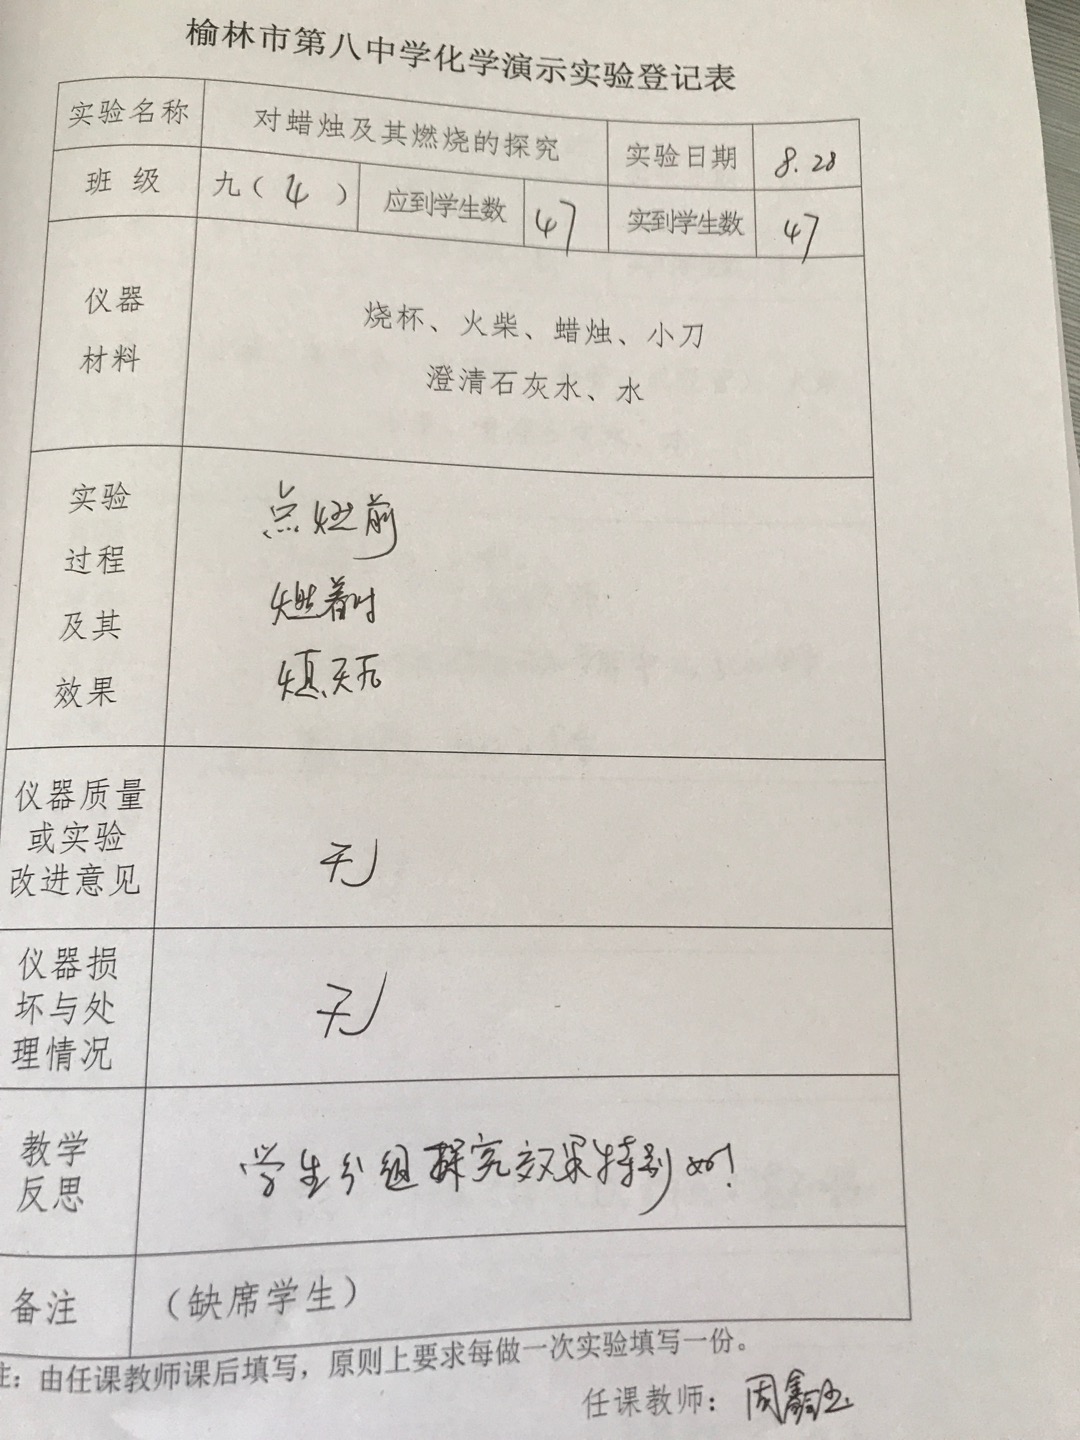 榆林市第八中学化学演示实验登记表
实验名称 对蜡烛及其燃烧的探究 实验日期 8.28
班 级 九（4） 应到学生数 47 实到学生数 47
仪器
材料
烧杯、火柴、蜡烛、小刀
澄清石灰水、水
实验
过程
及其
效果
点燃前
燃着时
熄灭后
仪器质量
或实验
改进意见
无
仪器损
坏与处
理情况
无
教学
反思
学生分组探究效果特别好！
备注 （缺席学生）
注：由任课教师课后填写，原则上要求每做一次实验填写一份。
任课教师：周鑫